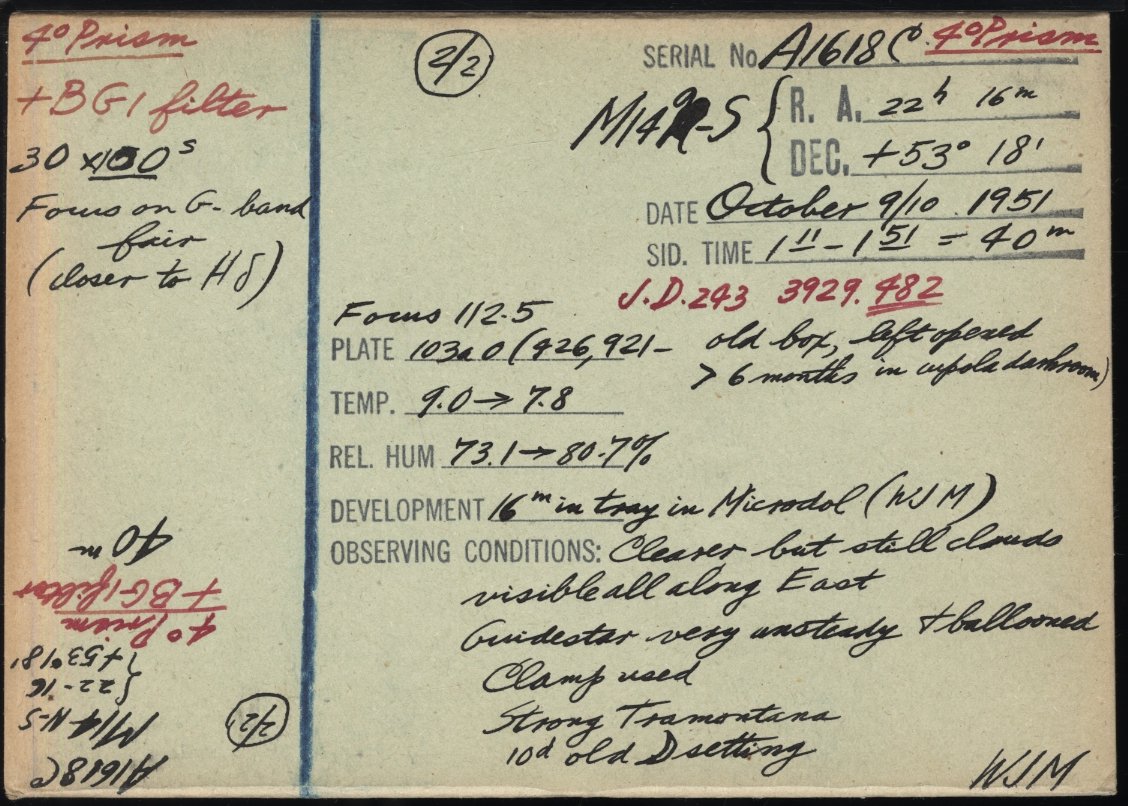 4° Prism
+ BG1 filter
30 x 100 s
Focus on G-band
fair
(closer to Hδ)
2/2
SERIAL No. A1618 C 4° Prism
R. A. 22h 16m
DEC. +53° 18'
DATE October 9/10 1951
SID. TIME 1 11 - 1 51 = 40 m
J.D. 243 3929.482
Focus 112.5
PLATE 103a O (426,921 - old box, left opened
> 6 months in cupola darkroom)
TEMP. 9.0 → 7.8
REL. HUM 73.1 → 80.7%
DEVELOPMENT 16 m in tray in Microdol (WJM)
OBSERVING CONDITIONS: Clearer but still clouds
visible all along East
Guidestar very unsteady + ballooned
Clamp used
Strong Tramontana
10d old D setting
WJM
A1618 C
M14 N-S
2/2
22-16
+53° 18'
4° Prism
+ BG1 filter
40 m